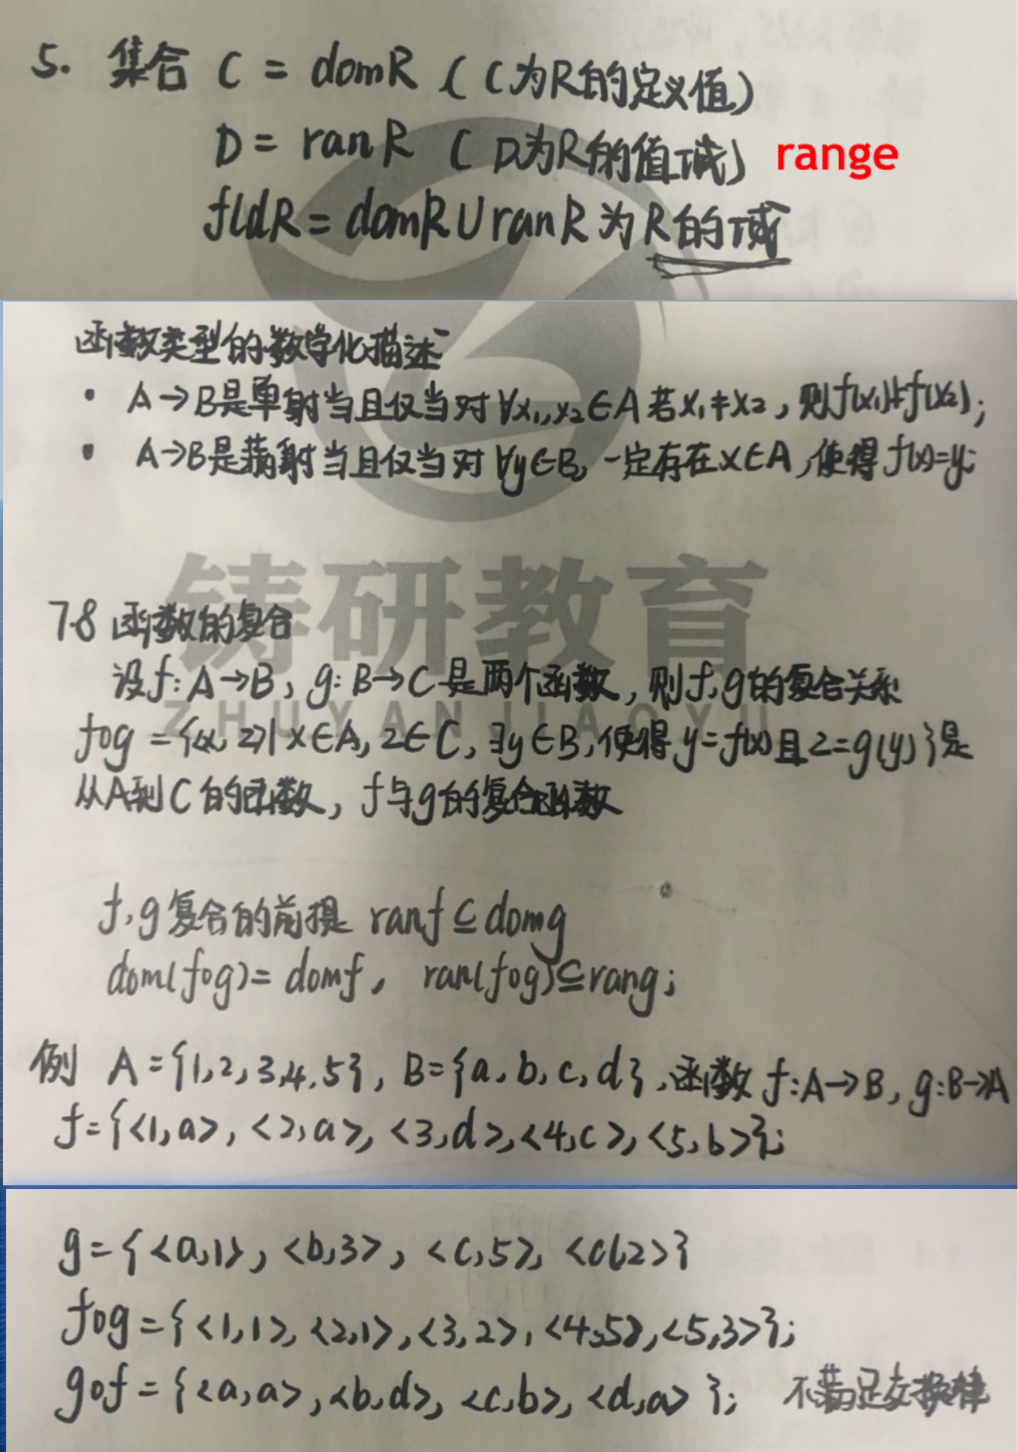 5. 集合 C = domR ( C为R的定义值)
D = ranR ( D为R的值域) range
fldR = domR∪ranR为R的域
函数类型的数学化描述
• A→B是单射当且仅当对∀x₁,x₂∈A若x₁≠x₂，则f(x₁)≠f(x₂);
• A→B是满射当且仅当对∀y∈B,一定存在x∈A,使得f(x)=y;
铸研教育
7.8 函数的复合
设f: A→B, g: B→C是两个函数，则f,g的复合关系
ZHUYANJIAOYU
fog ={<x,z>| x∈A, z∈C, ∃y∈B,使得y=f(x)且z=g(y)}是
从A到C的函数，f与g的复合函数
f,g复合的前提 ranf⊆domg
dom(fog)= domf, ran(fog)⊆rang;
例 A={1,2,3,4,5}, B={a,b,c,d},函数f:A→B, g:B→A
f={<1,a>,<2,a>,<3,d>,<4,c>,<5,b>};
g={<a,1>,<b,3>,<c,5>,<d,2>}
fog={<1,1>,<2,1>,<3,2>,<4,5>,<5,3>};
gof={<a,a>,<b,d>,<c,b>,<d,a>}; 不满足交换律